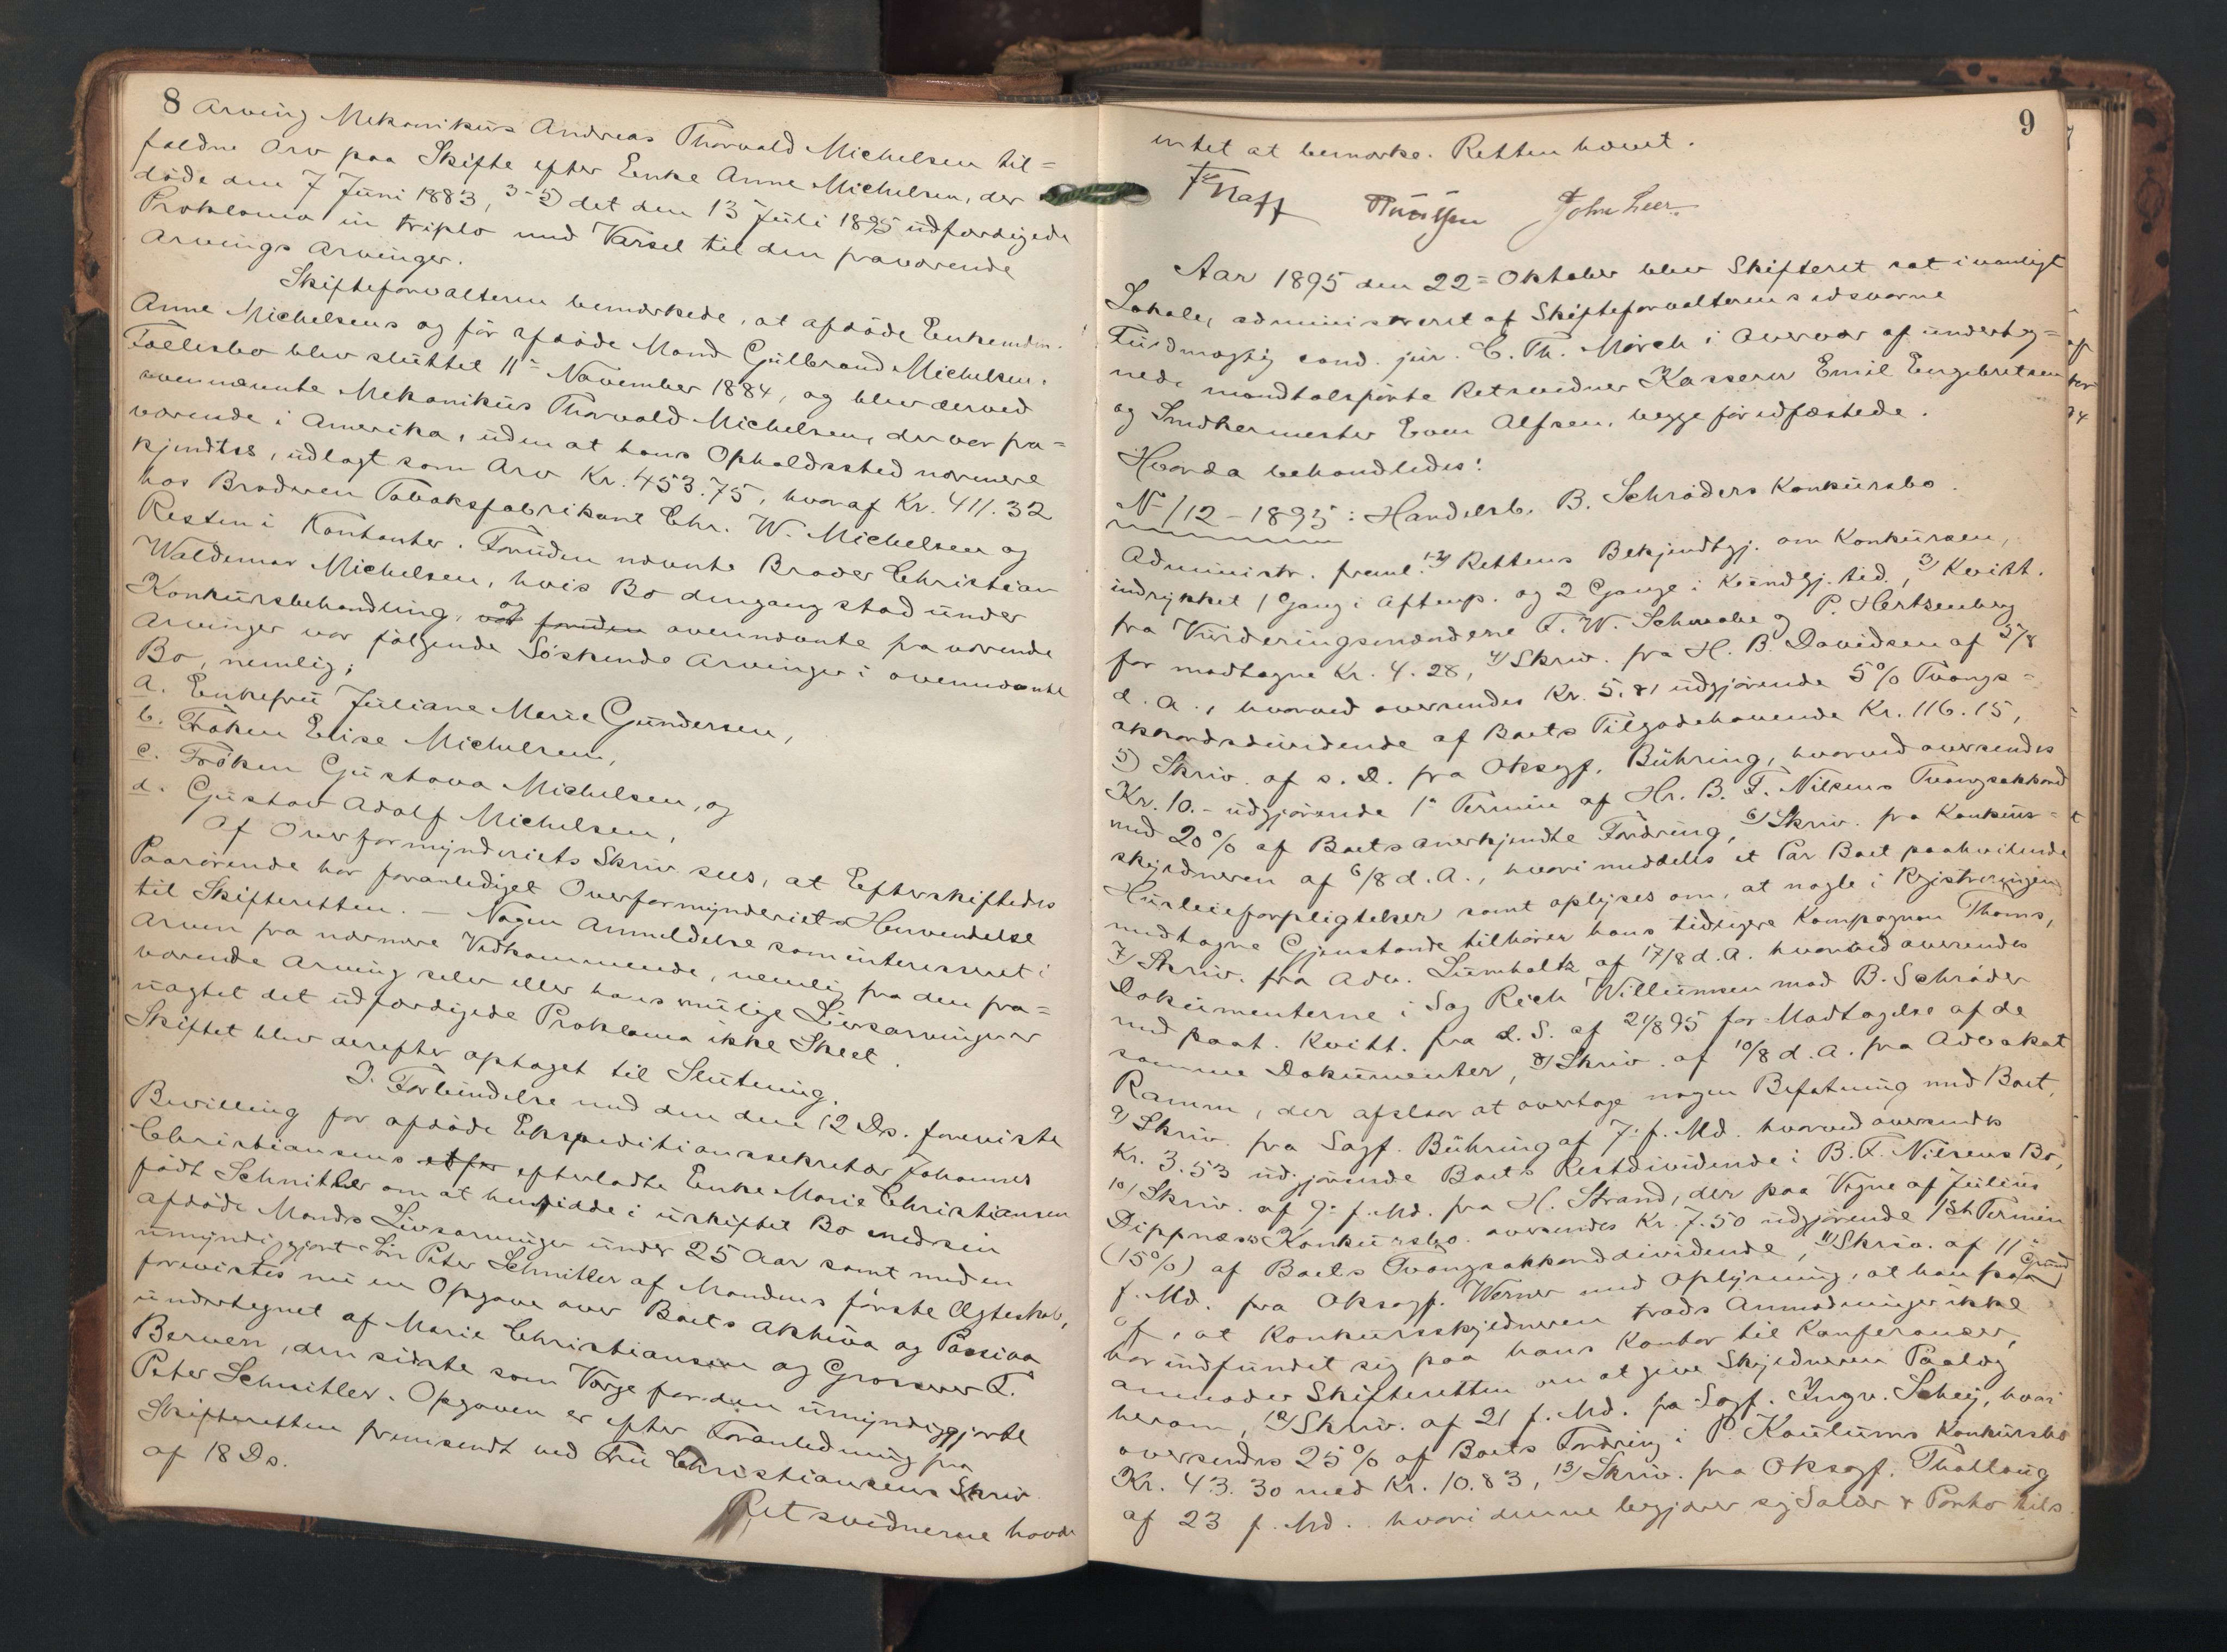 8 Arving Mekanikus Andreas Thorvald Michelsen til=
faldne Arv paa Skifte efter Enke Anne Michelsen, der
døde den 7 Juni 1883, 3-5) det den 13 Juli 1895 udfærdigede
Proklama in triplo med Varsel til den fraværende
Arvings Arvinger.
Skifteforvalteren bemærkede, at afdøde Enkemdm.
Anne Michelsens og før afdøde Mand Gulbrand Michelsen.
Fællesbo blev sluttet 11te November 1884, og blev derved
ovennævnte Mekanikus Thorvald Michelsen, der var fra=
værende i Amerika, uden at hans Opholdssted nærmere
kjendtes, udlagt som Arv Kr. 453.75, hvoraf Kr. 411.32
hos Broderen Tobaksfabrikant Chr. W. Michelsen og
Resten i Kontanter. Foruden nævnte Broder Christian
Waldemar Michelsen, hvis Bo dengang stod under
Konkursbehandling, og var foruden ovennævnte fraværende
Arvinger var følgende Søskende Arvinger i ovennævnte
Bo, nemlig;
a. Enkefru Juliane Marie Gundersen,
b. Frøken Elise Michelsen,
c. Frøken Gustava Michelsen, og
d. Gustav Adolf Michelsen,
Af Overformynderiets Skriv. sees, at Efterskiftedes
Paarørende har foranlediget Overformynderiets Henvendelse
til Skifteretten. — Nogen Anmeldelse som interesseret i
Arven fra nærmere Vedkommende, nemlig fra den fra=
værende Arving selv eller hans mulige Livsarvinger er
uagtet det udfærdigede Proklama ikke Skeet.
Skiftet blev derefter optaget til Slutning.
I Forbindelse med den den 12 Ds. foreviste
Bevilling for afdøde Ekspeditionssekretær Johannes
Christiansens et for efterladte Enke Marie Christiansen
født Schnitler om at hensidde i uskiftet Bo med sin
afdøde Mands Livsarvinger under 25 Aar samt med en
umyndiggjort Søn Peter Schnitler af Mandens første Ægteskab,
forevistes nu en Opgave over Boets Aktiva og Passiva
undertegnet af Marie Christiansen og Grosserer T.
Berven, den sidste som Værge for den umyndiggjorte
Peter Schnitler. Opgaven er efter Foranledning fra
Skifteretten fremsendt ved Fru Christiansens Skriv.
af 18 Ds.
Retsvidnerne havde
9
intet at bemærke. Retten hævet.
John Leer.
Aar 1895 den 22= Oktober blev Skifteret sat i vanligt
Lokale, administreret af Skifteforvalterens edsvorne
Fuldmægtig cand. jur. C. Th. Mørch i Overvær af underteg=
nede mandtalsførte Retsvidner Kasserer Emil Engebretsen
og Snedkermester Even Alfsen, begge før edfæstede.
Hvorda behandledes:
No 12-1895: Handelsb. B. Schrøders Konkursbo.
Administr. freml. 1-2) Rettens Bekjendtgj. om Konkursen,
indrykket 1 Gang i Aftenp. og 2 Gange i Kundgj.tid., 3) Kvitt.
fra Vurderingsmændene F. W. Schwabe og P. Hertzenberg
for modtagne Kr. 4.28, 4) Skriv. fra H. B. Davidsen af 3/8
d. A., hvorved oversendes Kr. 5.81 udgjørende 5% Tvangs=
akkordsdividende af Boets Tilgodehavende Kr. 116.15,
5) Skriv. af s. D. fra Oksagf. Bühring, hvorved oversendes
Kr. 10.- udgjørende 1ste Termin af Hr. B. F. Nilsens Tvangsakkord
med 20% af Boets anerkjendte Fordring, 6) Skriv. fra Konkurs=
skyldneren af 6/8 d. A., hvori meddeles et Par Boet paahvilende
Husleieforpligtelser samt oplyses om, at nogle i Registreringen
medtagne Gjenstande tilhører hans tidligere Kompagnon Thoms,
7) Skriv. fra Adv. Lumholtz af 17/8 d. A. hvorved oversendes
Dokumenterne i Sag Rich Willumsen mod B. Schrøder
med paat. Kvitt. fra d. S. af 21/8 95 for Modtagelse af de
samme Dokumenter, 8) Skriv. af 10/8 d. A. fra Advokat
Ramm, der afslaar at overtage nogen Befatning med Boet,
9) Skriv. fra Sagf. Bühring af 7. f. Md. hvorved oversendes
Kr. 3.53 udgjørende Boets Restdividende i B. F. Nilsens Bo,
10) Skriv. af 9. f. Md. fra H. Strand, der paa Vegne af Julius
Dippners Konkursbo oversendes Kr. 7.50 udgjørende 1ste Termin
(15%) af Boets Tvangsakkorddividende, 11) Skriv. af 11te
f. Md. fra Oksagf. Werner med Oplysning, at han paa Grund
af, at Konkursskyldneren trods Anmodninger ikke
har indfundet sig paa hans Kontor til Konferancer,
anmoder Skifteretten om at give Skyldneren Paalæg
herom, 12) Skriv. af 21 f. Md. fra Sagf. Ingv. Schej, hvori
oversendes 25% af Boets Fordring i P. Kaulums Konkursbo
Kr. 43.30 med Kr. 10.83, 13) Skriv. fra Oksagf. Thallaug
af 23 f. Md. hvori denne begjærer sig Salær & Porto tils